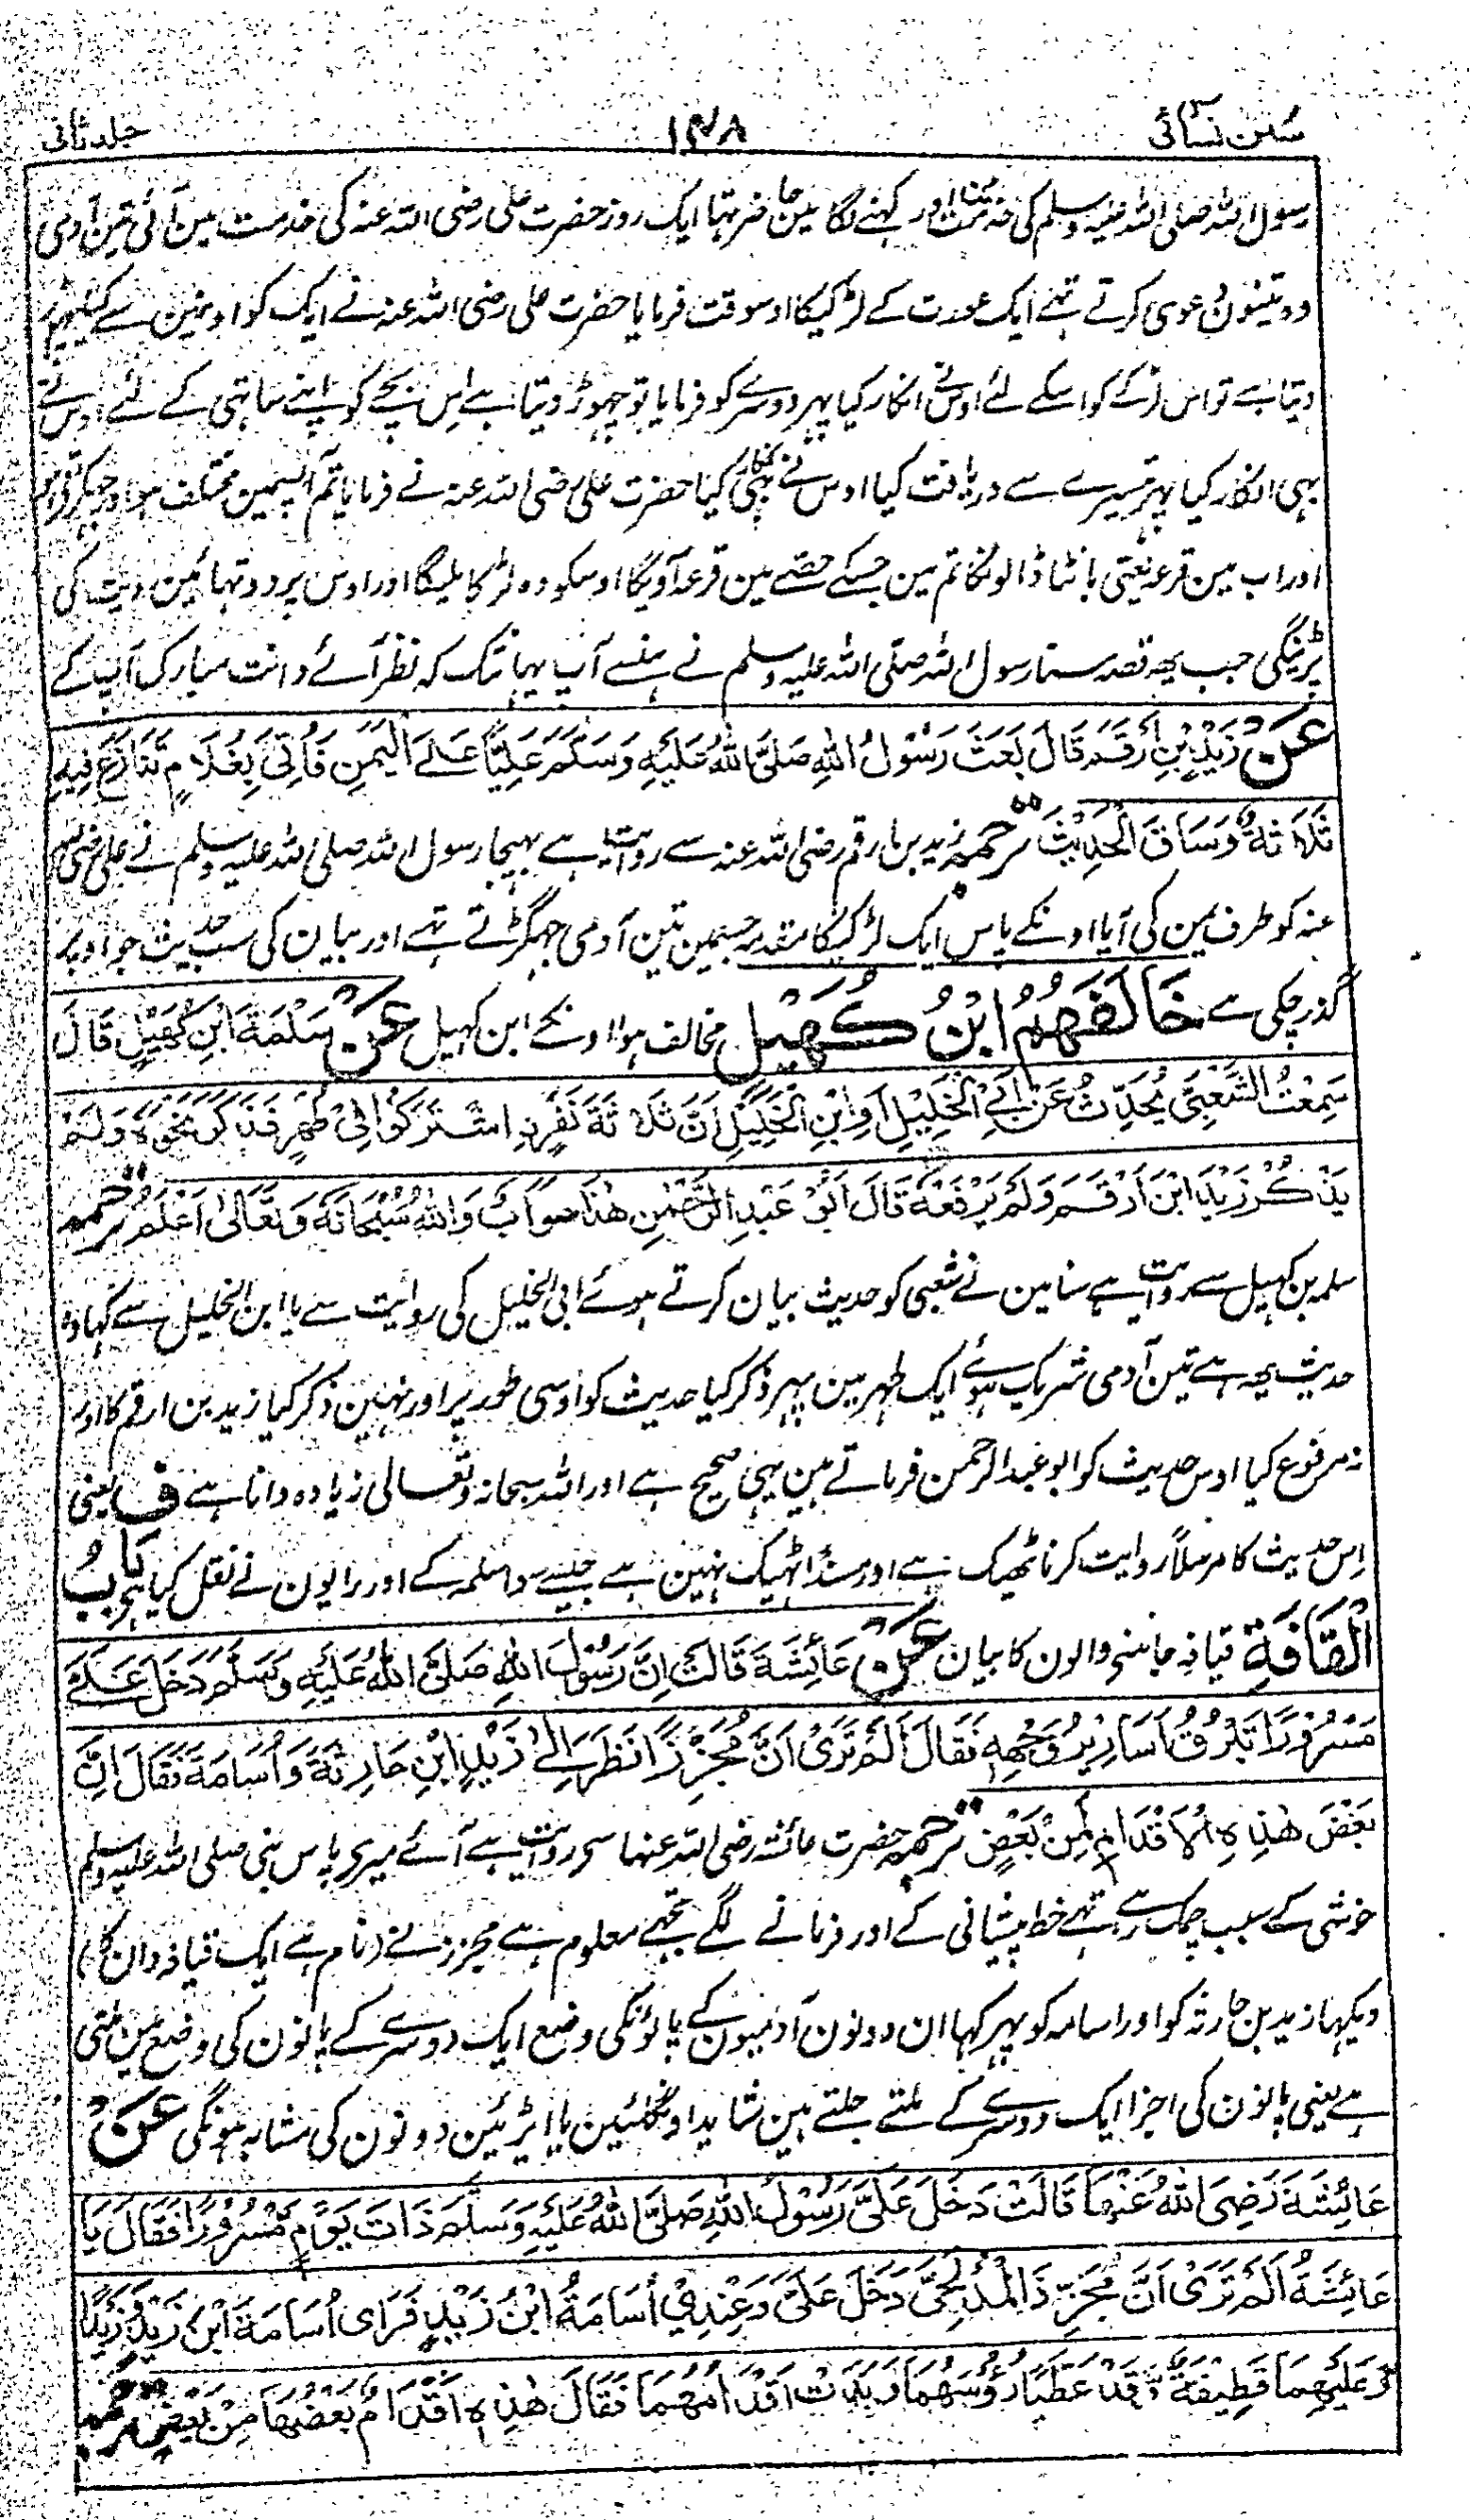 سنن نسائی ۱۴۸ جلد ثانی
رسول اللہ صلی اللہ علیہ وسلم کی خدمت مین اور کہنے لگا مین حاضر تہا ایک روز حضرت علی رضی اللہ عنہ کی خدمت مین آئی تین آدمی
وہ تینون دعوی کرتے تہے ایک عورت کے لڑکیکا اوسوقت فرمایا حضرت علی رضی اللہ عنہ نے ایک کو اونمین سے کہ
دیتا ہے تو اس لڑکے کو اسکے لئے اوسنے انکار کیا پہر دوسرے کو فرمایا تو چہوڑ دیتا ہے اس بچے کو اپنے ساتہی کے لئے اوسنے
بہی انکار کیا پہر تیسرے سے دریافت کیا اوس نے بہی انکار کیا حضرت علی رضی اللہ عنہ نے فرمایا تم آپسمین مختلف ہو اور جہگڑالو
اور اب مین قرعہ یعنی بانٹا ڈالونگا تم مین جسکے حصے مین قرعہ آویگا اوسکو وہ لڑکا ملیگا اور اوس پر دو تہائین دیت کی
پڑینگی جب یہ قصہ سنا رسول اللہ صلی اللہ علیہ وسلم نے ہنسے آپ یہانتک کہ نظر آئے دانت مبارک آپ کے
عَنْ زَيْدِ بْنِ أَرْقَمَ قَالَ بَعَثَ رَسُوْلُ اللهِ صَلَّى اللهُ عَلَيْهِ وَسَلَّمَ عَلِيًّا عَلَى الْيَمَنِ فَأُتِيَ بِغُلَامٍ تَنَازَعَ فِيهِ
ثَلَاثَةٌ وَسَاقَ الْحَدِيْثَ ترجمہ زید بن ارقم رضی اللہ عنہ سے روایت ہے بہیجا رسول اللہ صلی اللہ علیہ وسلم نے علی رضی اللہ
عنہ کو طرف یمن کی آیا اونکے پاس ایک لڑکیکا مقدمہ جسمین تین آدمی جہگڑتے تہے اور بیان کی سب حدیث جو اوپر
گذر چکی ہے خَالَفَهُمْ ابْنُ كُهَيْلٍ مخالف ہوا اونکے ابن کہیل عَنْ سَلَمَةَ ابْنِ كُهَيْلٍ قَالَ
سَمِعْتُ الشَّعْبِيَّ يُحَدِّثُ عَنْ أَبِي الْخَلِيْلِ أَوِ ابْنِ الْخَلِيْلِ أَنَّ ثَلَاثَةَ نَفَرٍ اشْتَرَكُوْا فِيْ طُهْرٍ فَذَكَرَ نَحْوَهُ وَلَمْ
يَذْكُرْ زَيْدَ ابْنَ أَرْقَمَ وَلَمْ يَرْفَعْهُ قَالَ أَبُوْ عَبْدِ الرَّحْمٰنِ هٰذَا صَوَابٌ وَاللهُ سُبْحَانَهُ وَتَعَالٰى أَعْلَمُ ترجمہ
سلمہ بن کہیل سے روایت ہے سنا مین نے شعبی کو حدیث بیان کرتے ہوئے ابی الخلیل کی روایت سے یا ابن الخلیل سے کہا وہ
حدیث یہ ہے تین آدمی شریک ہوئے ایک طہر مین پہر ذکر کیا حدیث کو اوسی طور پر اور نہین ذکر کیا زید بن ارقم کا اور
نہ مرفوع کیا اوس حدیث کو ابو عبدالرحمن فرماتے ہین یہی صحیح ہے اور اللہ سبحانہ وتعالی زیادہ دانا ہے ف یعنی
اِس حدیث کا مرسلاً روایت کرنا ٹھیک ہے اور مسنداً ٹہیک نہین ہے جیسے سوا سلمہ کے اور راویون نے نقل کیا ہے بَابُ
الْقَافَةِ قیافہ جاننے والون کا بیان عَنْ عَائِشَةَ قَالَتْ اِنَّ رَسُوْلَ اللهِ صَلَّى اللهُ عَلَيْهِ وَسَلَّمَ دَخَلَ عَلَيَّ
مَسْرُوْرًا تَبْرُقُ أَسَارِيْرُ وَجْهِهِ فَقَالَ أَلَمْ تَرَيْ اَنَّ مُجَزِّزًا نَظَرَ اِلٰى زَيْدِ ابْنِ حَارِثَةَ وَاُسَامَةَ فَقَالَ اِنَّ
بَعْضَ هٰذِهِ الْاَقْدَامِ لَمِنْ بَعْضٍ ترجمہ حضرت عائشہ رضی اللہ عنہا سے روایت ہے آئے میری پاس نبی صلی اللہ علیہ وسلم
خوشی کے سبب چمک رہے تہے خط پیشانی کے اور فرمانے لگے تجھے معلوم ہے مجزز نے (نام ہے ایک قیافہ دان کا)
دیکہا زید بن حارثہ کو اور اسامہ کو پہر کہا ان دونون آدمیون کے پانونکی وضع ایک دوسرے کے پانون کی وضع مین ملتی
ہے یعنی پانون کی اجزا ایک دوسرے کے ملتے جلتے ہین شاید اونگلئین یا ایڑئین دونون کی مشابہ ہونگی عَنْ
عَائِشَةَ رَضِيَ اللهُ عَنْهَا قَالَتْ دَخَلَ عَلَيَّ رَسُوْلُ اللهِ صَلَّى اللهُ عَلَيْهِ وَسَلَّمَ ذَاتَ يَوْمٍ مَسْرُوْرًا فَقَالَ يَا
عَائِشَةُ اَلَمْ تَرَيْ اَنَّ مُجَزِّزَ الْمُدْلِجِيَّ دَخَلَ عَلَيَّ وَعِنْدِيْ أُسَامَةُ ابْنُ زَيْدٍ فَرَاٰى اُسَامَةَ ابْنَ زَيْدٍ وَزَيْدًا
وَعَلَيْهِمَا قَطِيْفَةٌ وَقَدْ غَطَّيَا رُؤُسَهُمَا وَبَدَتْ اَقْدَامُهُمَا فَقَالَ هٰذِهِ اَقْدَامٌ بَعْضُهَا مِنْ بَعْضٍ ترجمہ